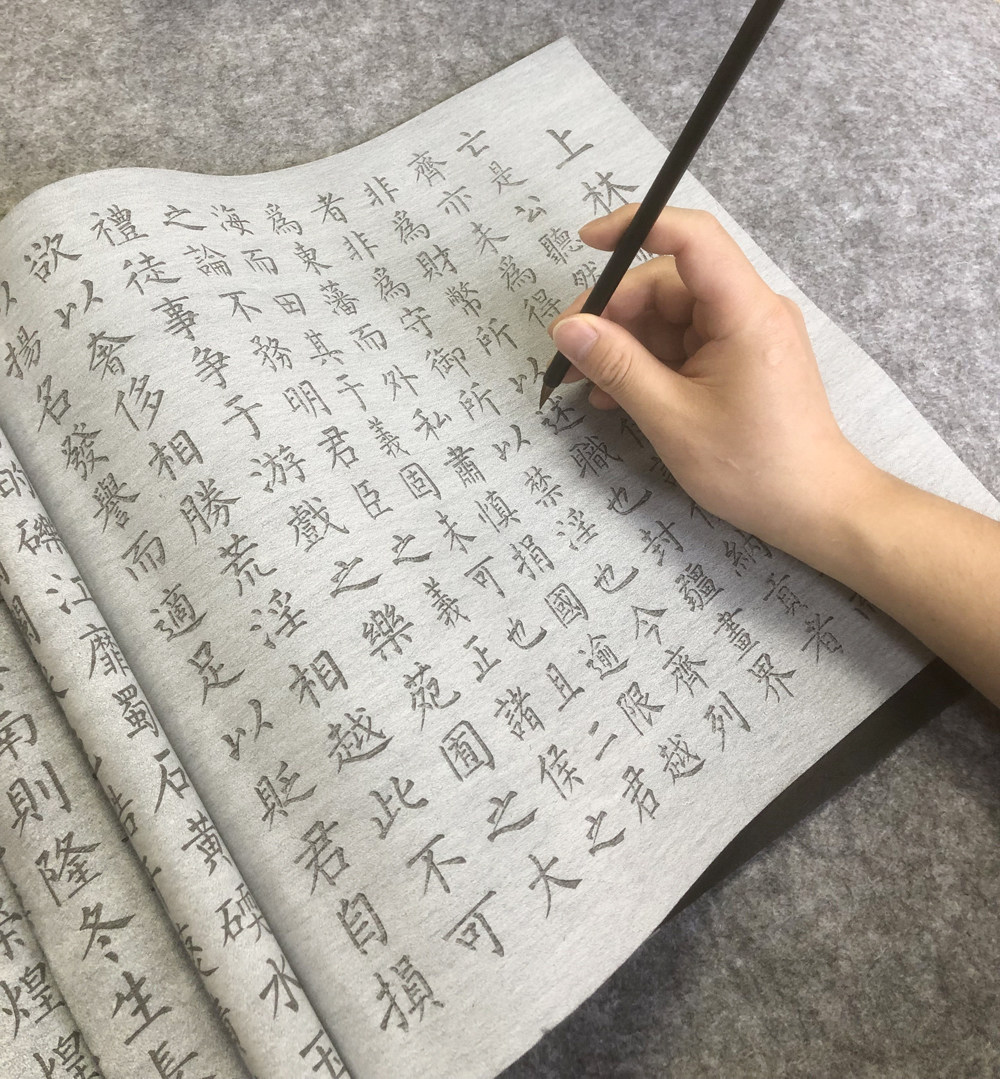 上林
亡是公聽然
齊亦未為得納貢者
非為財幣所以述職也封疆畫界
者非為守御所以禁淫也今齊列
為東藩而外私肅慎捐國逾限越
海而田其于義固未可也且二君
之論不務明君臣之義正諸侯之
禮徒事爭于游戲之樂苑囿之大
欲以奢侈相勝荒淫相越此不可
以揚名發譽而適足以貶君自損
的礫江靡蜀石黃碝水玉
南則隆冬生長
煌煌